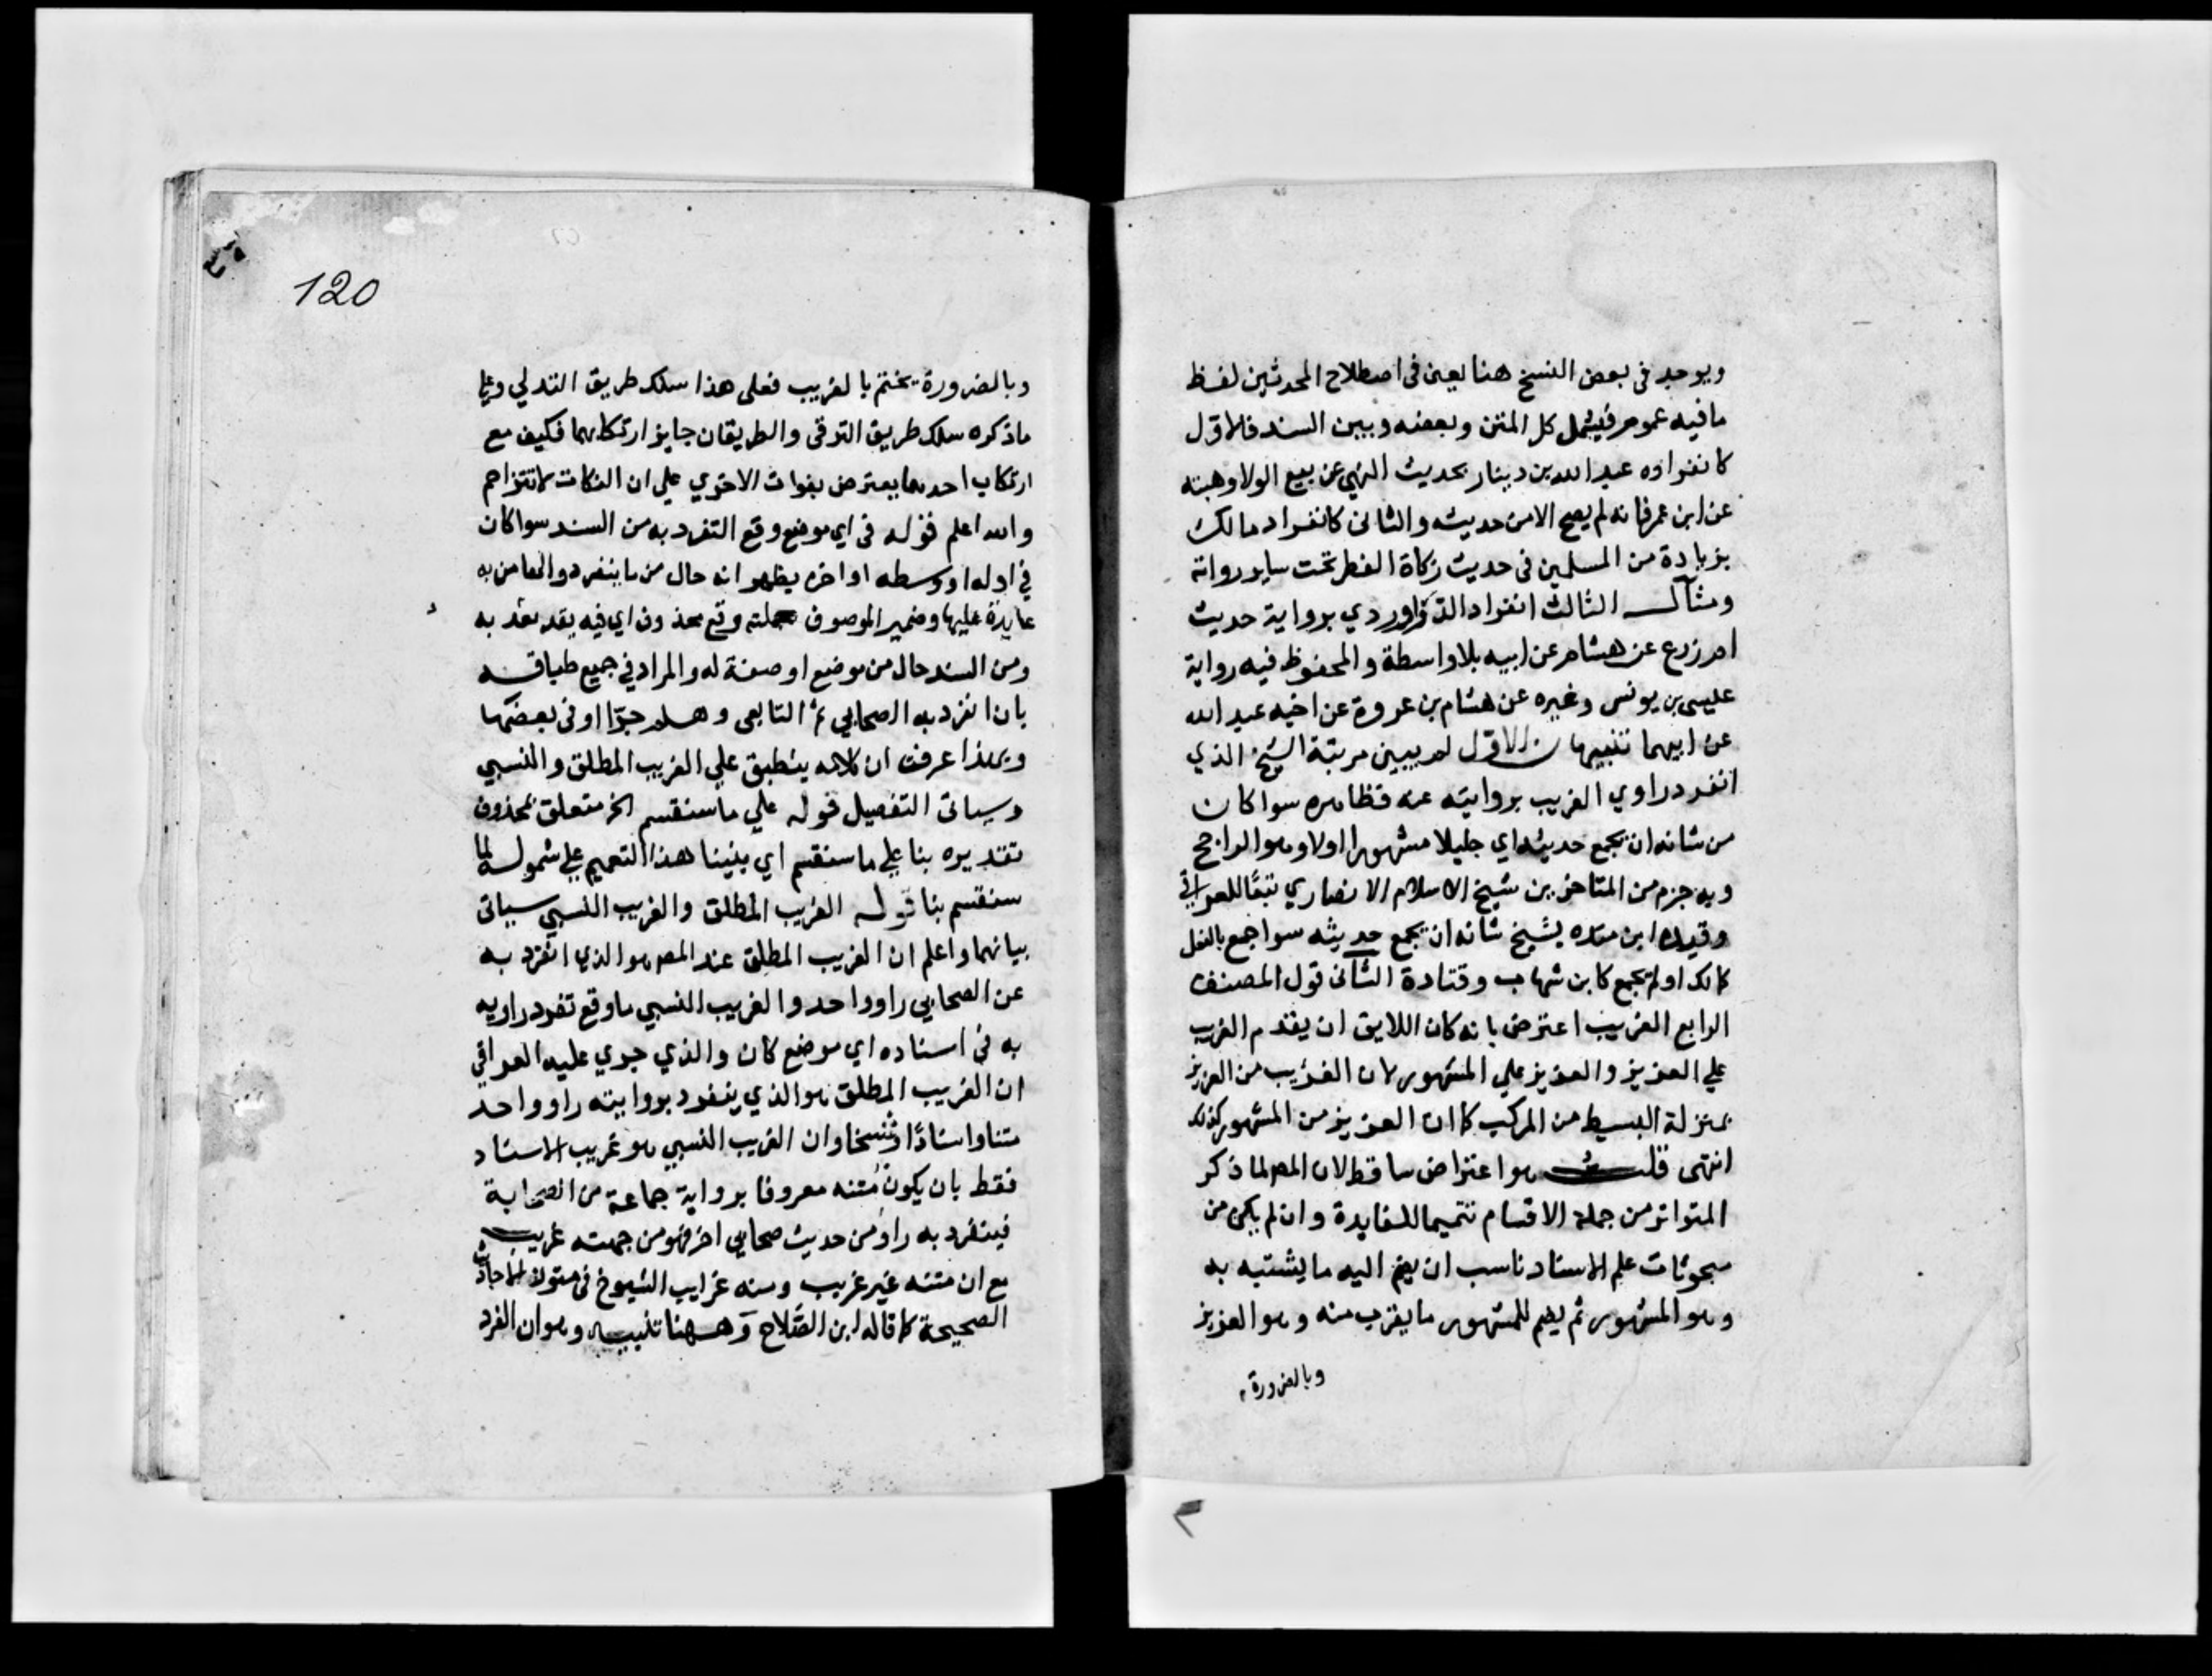 ويوجد في بعض النسخ هنا يعني في اصطلاح المحدثين لفظ
ما فيه عموم فيشمل كل المتن وبعضه وبين السند فالاول
كانفراده عبد الله بن دينار بحديث النهي عن بيع الولا وهبته
عن ابن عمر فانه لم يصح الا من حديثه والثاني كانفراد مالك
بزيادة من المسلمين في حديث زكاة الفطر تحت ساير رواته
ومثال الثالث انفراد الدراوردي برواية حديث
ام زرع عن هشام عن ابيه بلا واسطة والمحفوظ فيه رواية
عيسى بن يونس وغيره عن هشام بن عروة عن اخيه عبد الله
عن ابيهما تنبيهان الاول لم يبين مرتبة الشيخ الذي
انفرد راوي الغريب بروايته عنه فظاهره سوا كان
من شانه ان يجمع حديثه اي جليلا مشهورا اولا وهو الراجح
وبه جزم من المتاخرين شيخ الاسلام الانصاري تبعًا للعراقي
وقيده ابن منده بشيخ شانه ان يجمع حديثه سوا جمع بالفعل
كمالك او لم يجمع كابن شهاب وقتادة الثاني قول المصنف
الرابع الغريب اعترض بانه كان اللايق ان يقدم الغريب
علي العزيز والعزيز علي المشهور لان الغريب من العزيز
بمنزلة البسيط من المركب كما ان العزيز من المشهور كذلك
انتهى قلت هو اعتراض ساقط لان المص لما ذكر
المتواتر من جملة الاقسام تتميما للفايدة وان لم يكن من
مبحوثات علم الاسناد ناسب ان يضم اليه ما يشتبه به
وهو المشهور ثم يضم للمشهور ما يقرب منه وهو العزيز
وبالضرورة
120
وبالضرورة يختم بالغريب فعلى هذا سلك طريق التدلي وعلي
ما ذكره سلك طريق الترقي والطريقان جايز ارتكابهما فكيف مع
ارتكاب احدهما يعترض بفوات الاخري علي ان النكات لا تتزاحم
والله اعلم قوله في اي موضع وقع التفرد به من السند سوا كان
في اوله او وسطه او اخره يظهر انه حال من ما ينفرد والها من به
عايدة عليها وضمير الموصوف بجملته وقع محذوف اي فيه بقد تقد به
ومن السند حال من موضع او صفة له والمراد في جميع طباقه
بان انفرد به الصحابي ثم التابعي وهلم جرّا او في بعضها
وبهذا عرفت ان كلامه ينطبق علي الغريب المطلق والنسبي
وسياتي التفصيل قوله علي ما سنقسم الخ متعلق بمحذوف
تقديره بنا علي ما سنقسم اي بنينا هذا التعميم علي شموله لما
سنقسم بنا قوله الغريب المطلق والغريب النسبي سياتي
بيانهما واعلم ان الغريب المطلق عند المص هو الذي انفرد به
عن الصحابي راو واحد والغريب النسبي ما وقع تفرد راويه
به في اسناده اي موضع كان والذي جري عليه العراقي
ان الغريب المطلق هو الذي ينفرد بروايته راو واحد
متنا واسنادًا ونسخا وان الغريب النسبي هو غريب الاسناد
فقط بان يكون متنه معروفا برواية جماعة من الصحابة
فينفرد به راو من حديث صحابي اخر فهو من جهته غريب
مع ان متنه غير غريب ومنه غرايب الشيوخ في متون الاحاديث
الصحيحة كما قاله ابن الصّلاح وههنا تنبيه وهو ان الفرد